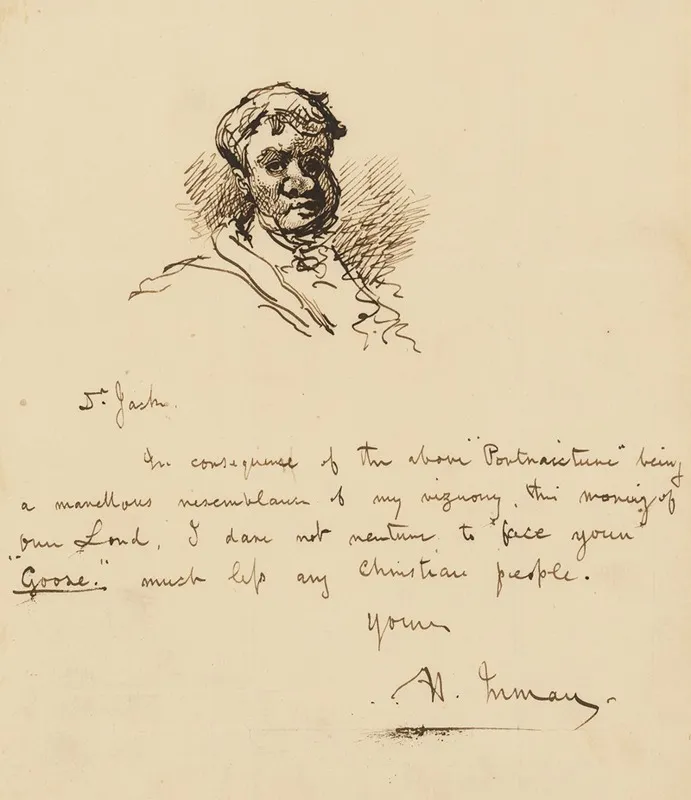 Dr. Jack.
In consequence of the above "Portraicture" being
a marvellous resemblance of my viznomy, this morning of
our Lord, I dare not venture to "face your"
"Goose." much less any Christian people.
Yours
H. Inman